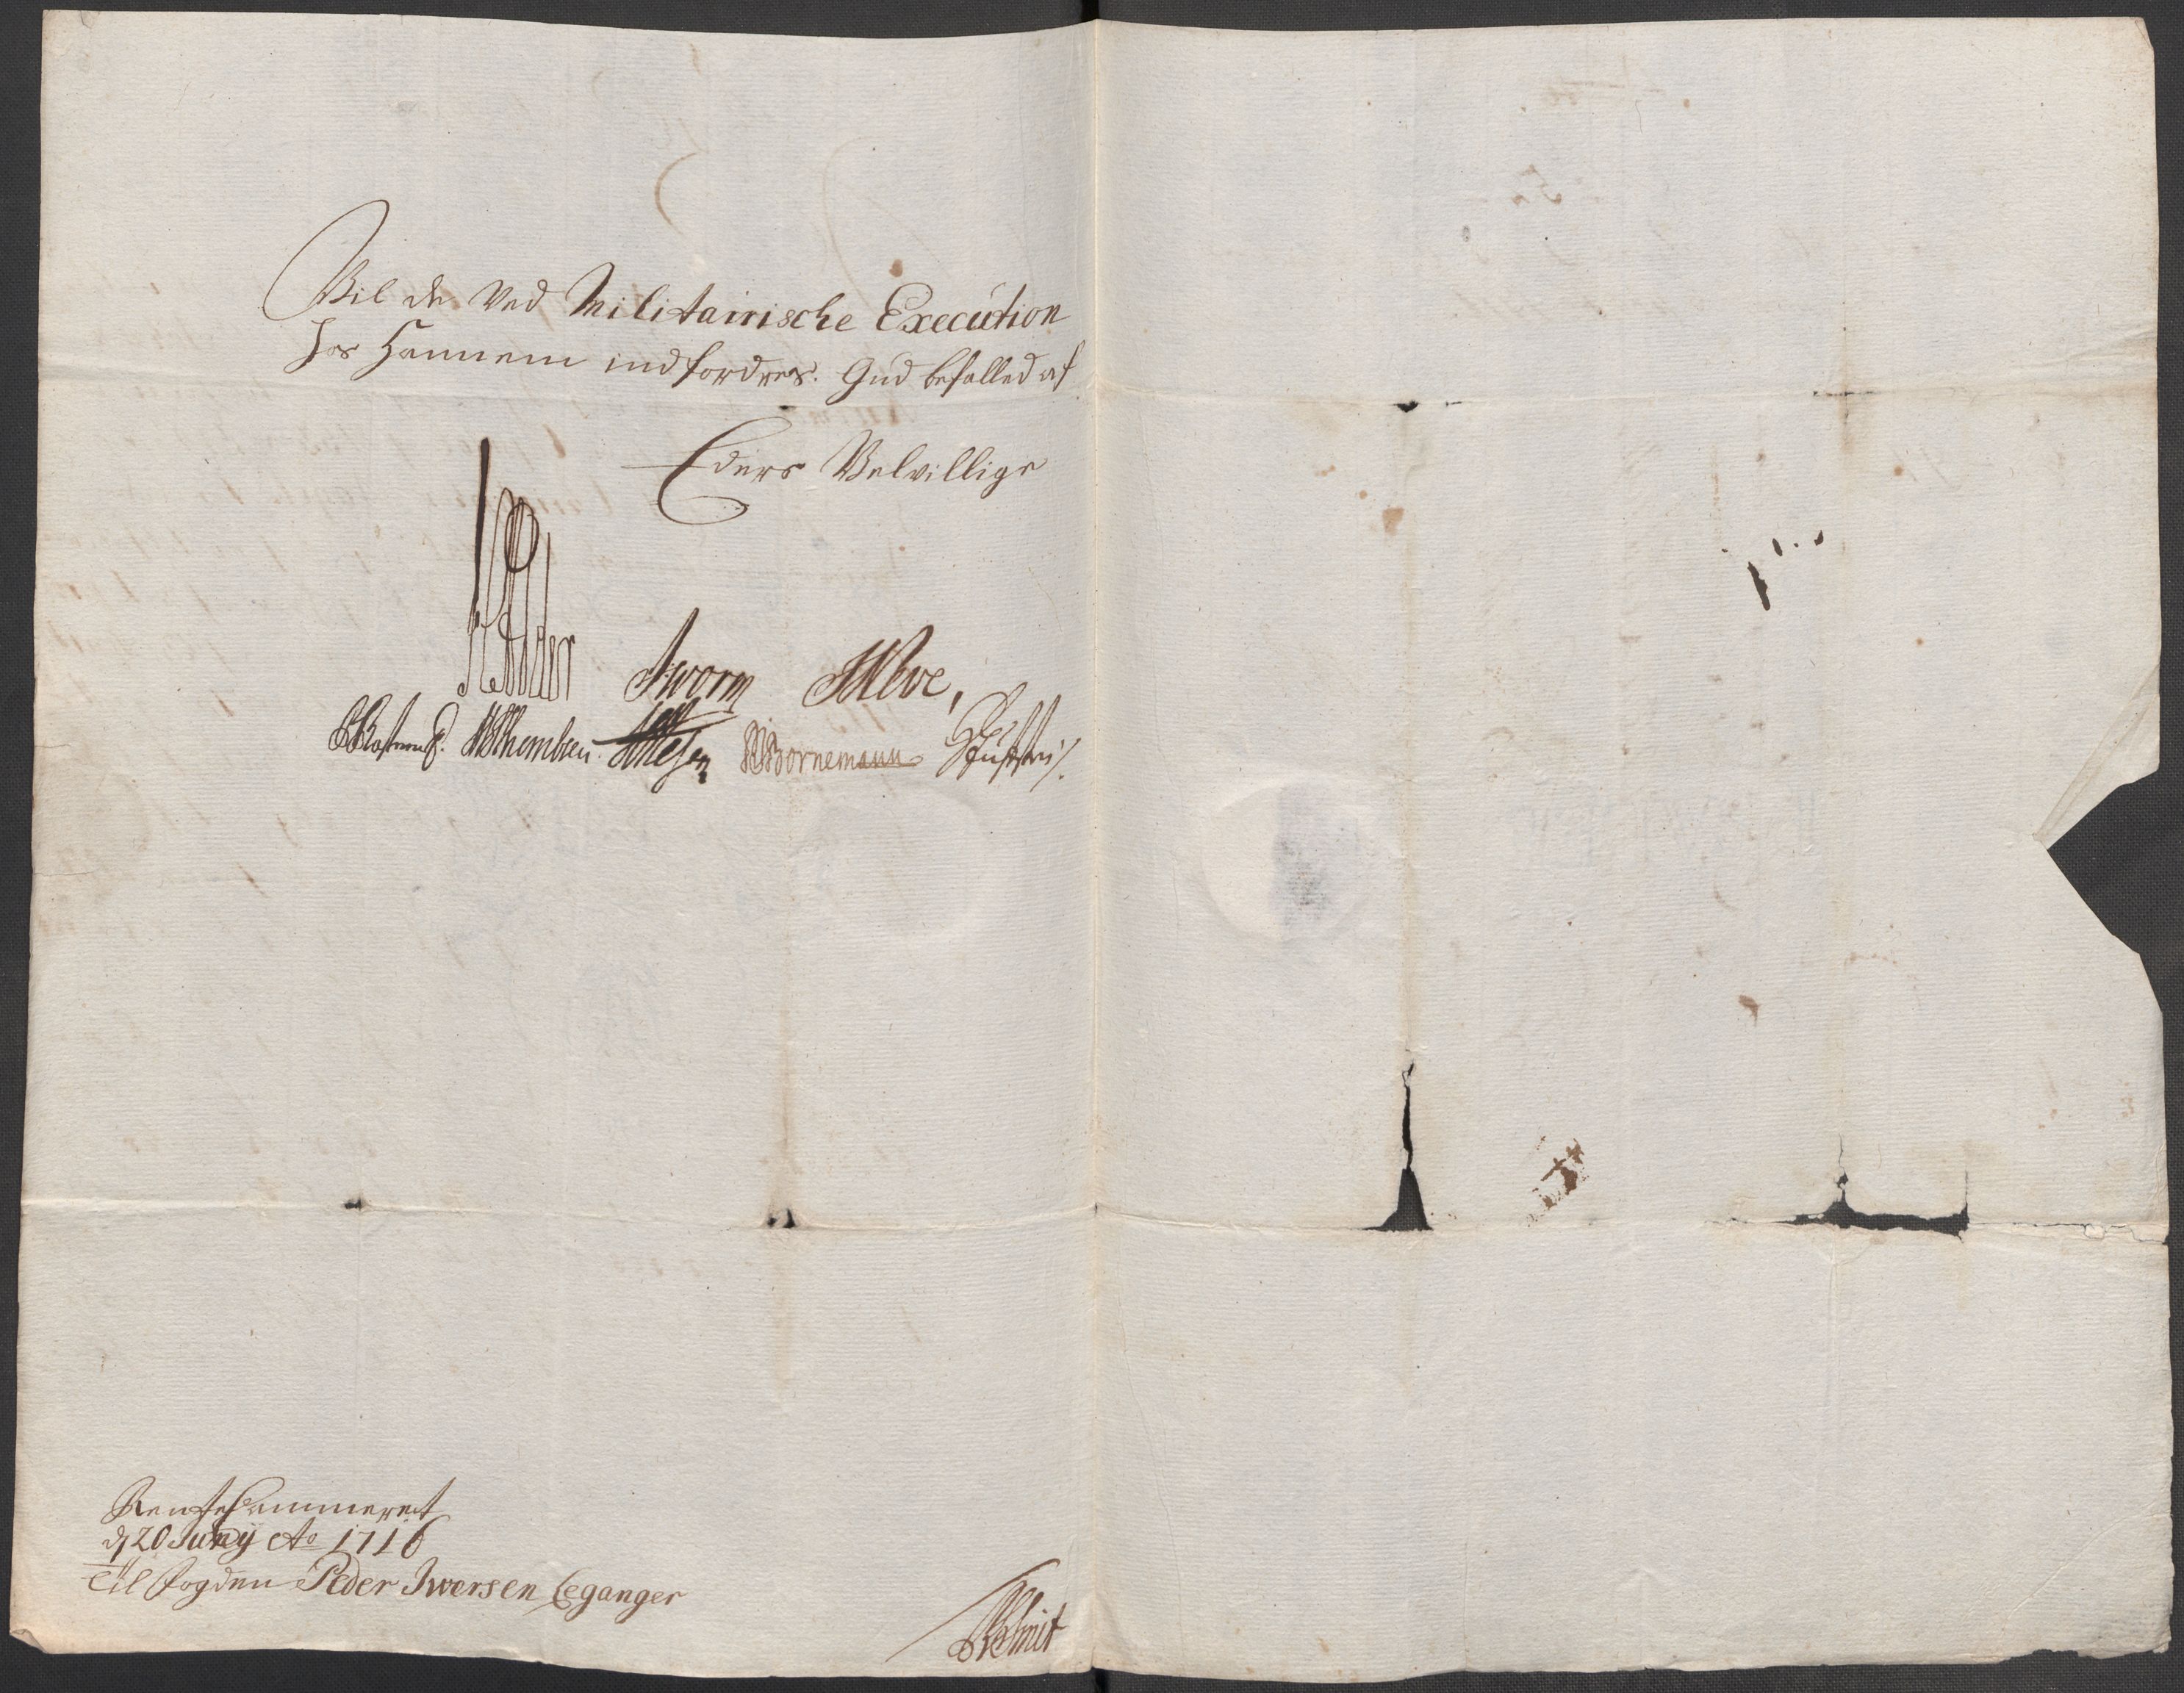 Vil de Ved Militairische Execution
hos Hannem indfordres. Gud befalled af
Eders Velvillige
JWorm
RBornemann
RenteCammeret
d 20 Juny Ao 1716
Til Fogden Peder Iwersen Leganger